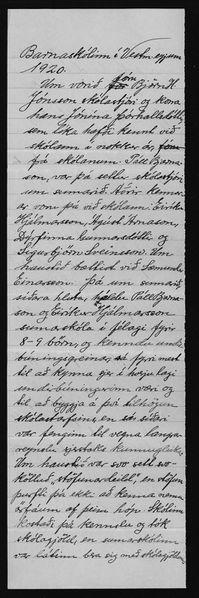 Barnaskólinn í Vestm.eyjum
1920.
Um vorið fóru Björn H
Jónsson skólastjóri og kona
hans Jónína Þórhallsdóttir
sem líka hafði kennt við
skólann í nokkur ár,
frá skólanum. Páll Bjarna-
son, var þá settur skólastjóri
um sumarið. Aðrir kennar-
ar voru þá við skólann: Eiríkur
Hjálmarsson, Ágúst Árnason,
Dýrfinna Gunnarsdóttir og
Sigurbjörn Sveinsson. Um
haustið bættist við
Einarsson. Þá um sumarið
síðara hluta, héldu Páll Bjarna-
son og Eiríkur Hjálmarsson
sumarskóla í félagi fyrir
8-9 börn, og kenndu undir-
búningsgreinar, að fyrir mest
til að kynna sér í hvaða lagi
undirbúningurinn væri og
til að byggja á því tilhögun
skólastarfsins, en
var fengin til vegna langra
reynslu
Um haustið var svo sett svo-
kölluð "Stöfunardeild", en
þurfti þá ekki að kenna nema
fáum af þeim hóp. Skólinn
kostaði þá kennslu og tók
skólagjöld, en sumarskólinn
var látinn bera sig með skólagjöldum.